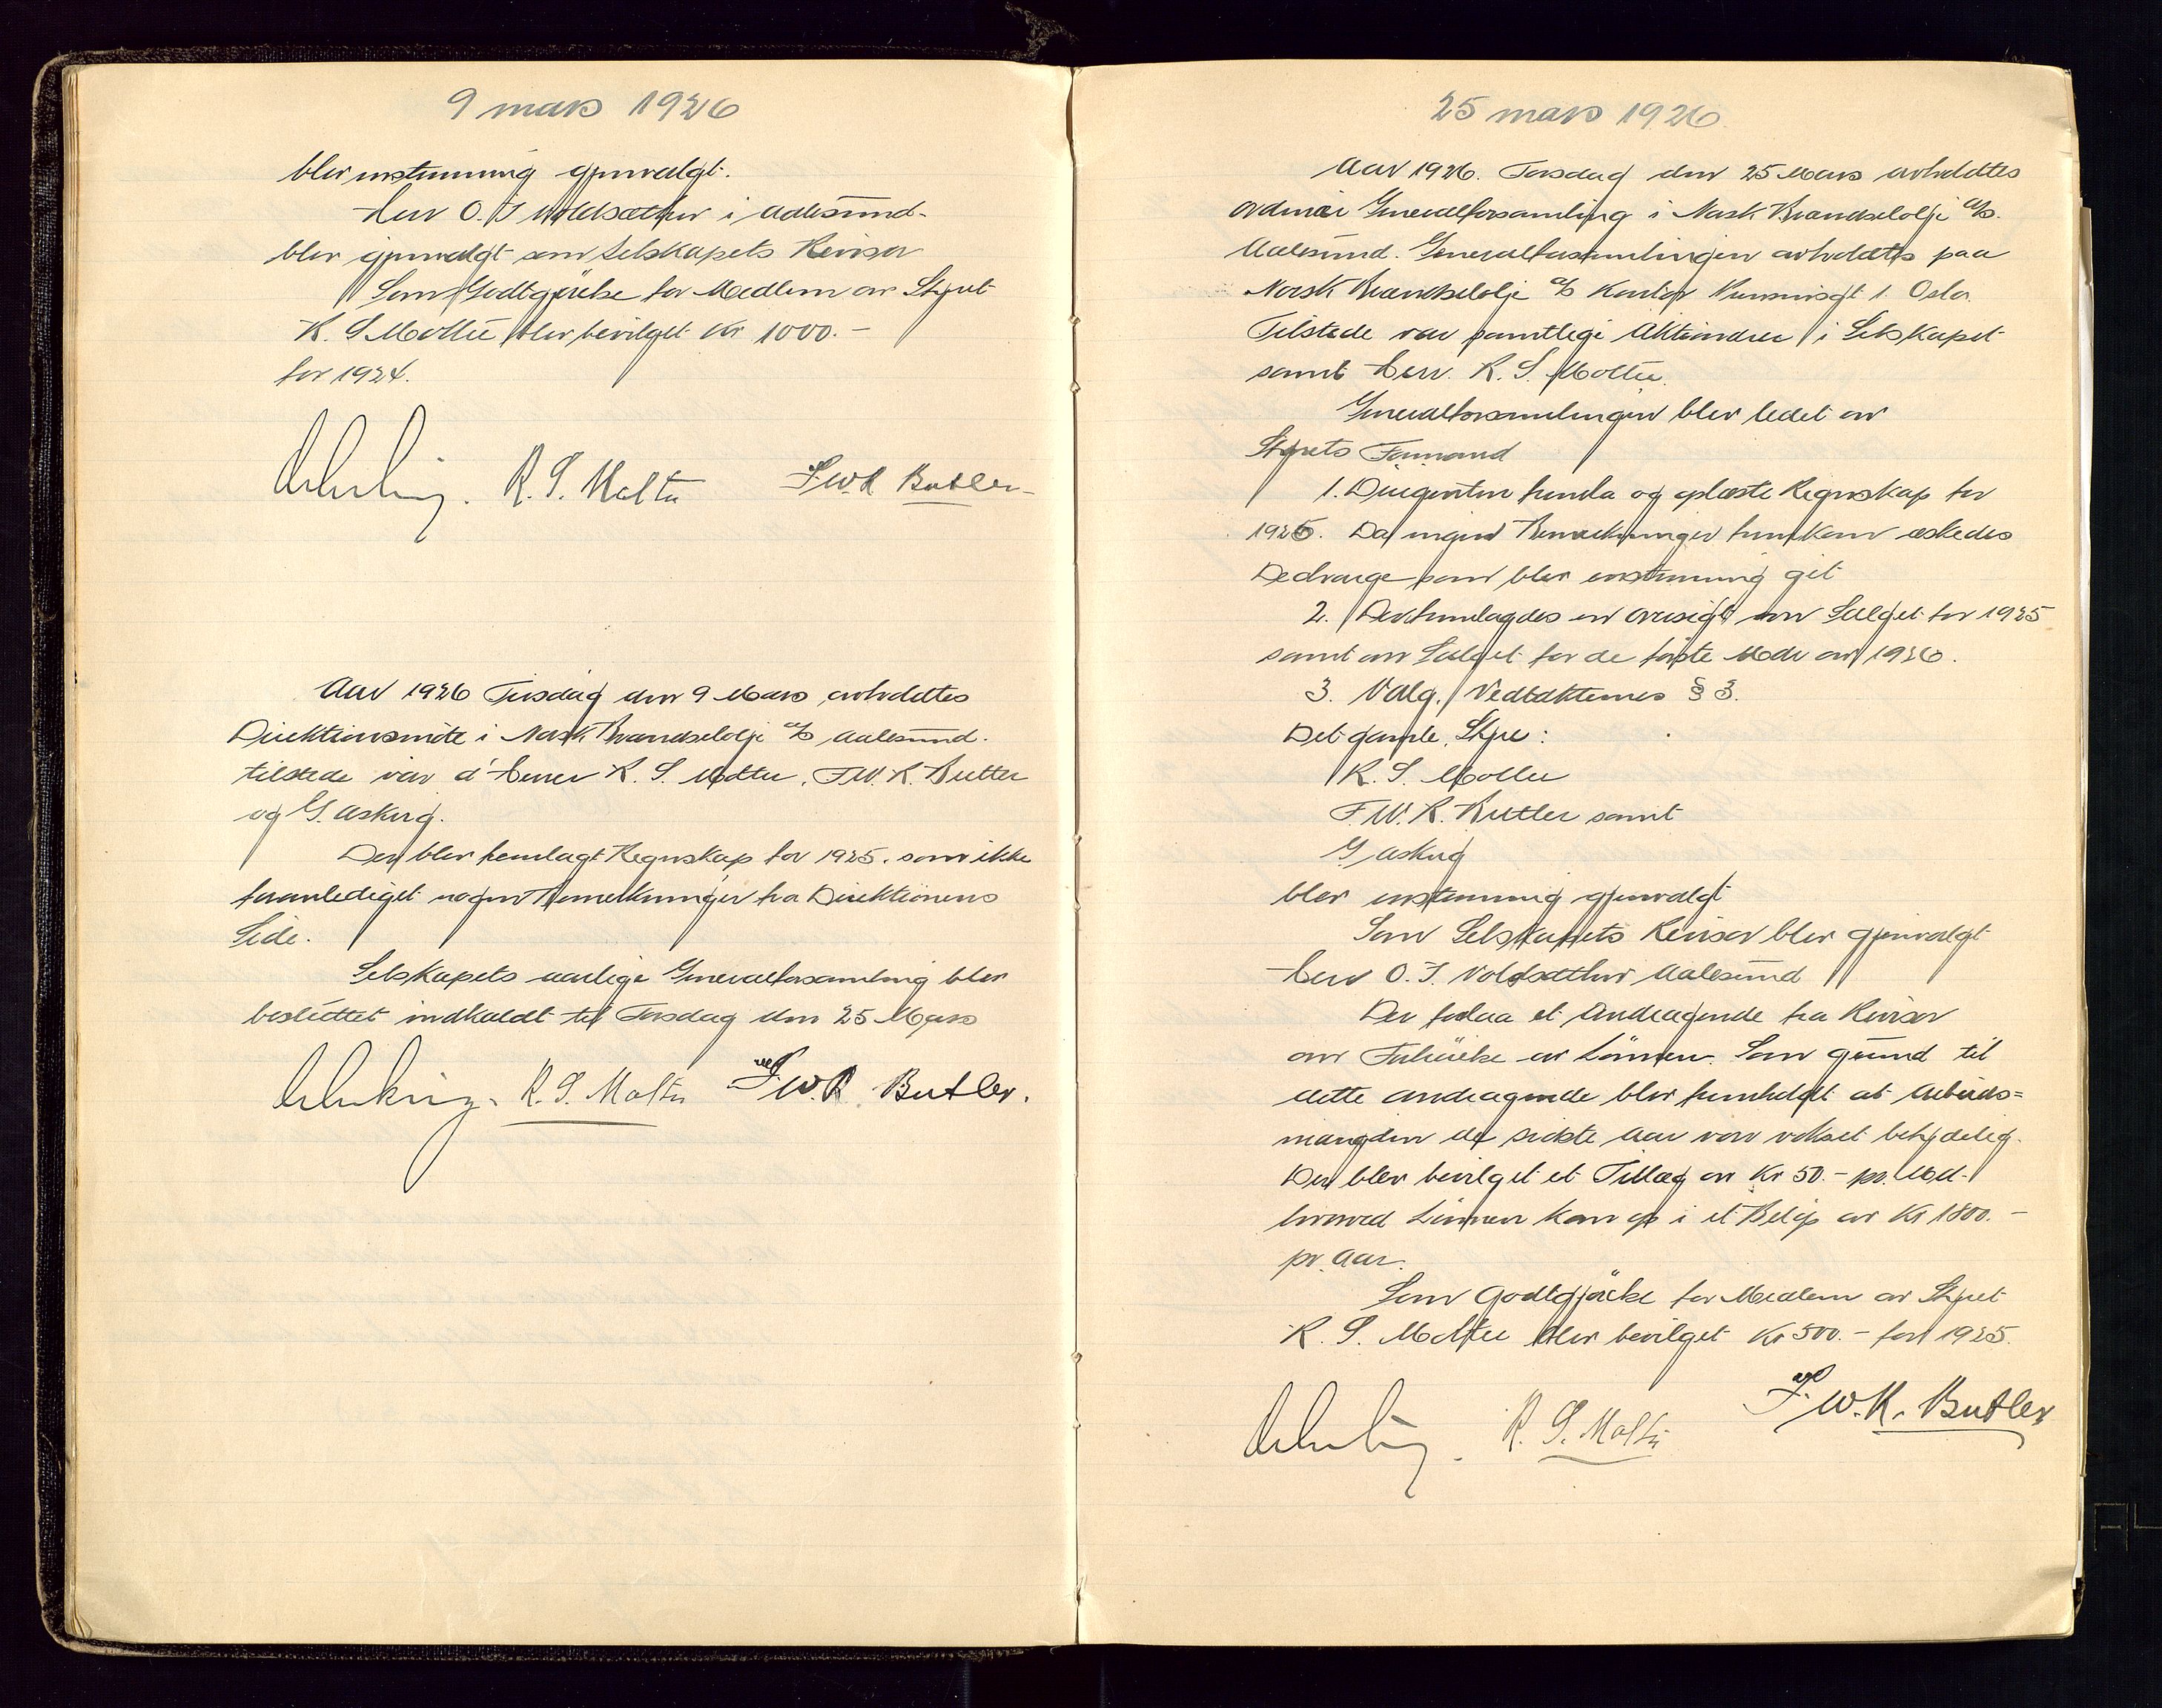 9 mars 1926
blev enstemmig gjenvalgt.
Herr O. J. Voldsæther i Aalesund
blev gjenvalgt som Selskapets Revisor
Som Godtgjörelse for Medlem av Styret
R. S. Moltu blev bevilget Kr 1000.-
for 1924.
R. S. Moltu F.W.R. Butler
Aar 1926 Tirsdag den 9 Mars avholdtes
Direktionsmöte i Norsk Brændselolje A/S Aalesund.
tilstede var d'Herrer R. S. Moltu, F.W.R. Butler
og G. Askvig.
Der blev fremlagt Regnskap for 1925. som ikke
foranlediget nogen Bemerkninger fra Direktionens
Side.
Selskapets aarlige Generalforsamling blev
besluttet indkaldt til Torsdag den 25 Mars
R. S. Moltu F.W.R. Butler.
25 mars 1926.
Aar 1926. Torsdag den 25 Mars avholdtes
ordinær Generalforsamling i Norsk Brændselolje A/S.
Aalesund. Generalforsamlingen avholdtes paa
Norsk Brændselolje A/S Kontor 1. Oslo.
Tilstede var samtlige Aktionærer i Selskapet
samt Herr. R. S. Moltu.
Generalforsamlingen blev ledet av
Styrets Formand
1. Dirigenten fremla og oplæste Regnskap for
1925. Da ingen Bemerkninger fremkom æskedes
Decharge som blev enstemmig git
2. Der fremlagdes en oversigt over Salget for 1925
samt over Salget for de første Mdr av 1926.
3. Valg. Vedtækternes § 3.
Det gamle Styre:
R. S. Moltu
F.W.R. Butler samt
G Askvig
blev enstemmig gjenvalgt
Som Selskapets Revisor blev gjenvalgt
Herr O. J. Voldsæther Aalesund
Der forlaa et Andragende fra Revisor
om Forhöielse av Lönnen. Som grund til
dette andragende blev fremholdt at Arbeids=
mængden de sidste Aar var vokset betydelig.
Der blev bevilget et Tillæg av Kr 50.- pr. Md.
hvorved Lönnen kom op i et Belöp av Kr 1800.-
pr. Aar.
Som Godtgjörelse for Medlem av Styret
R. S. Moltu blev bevilget Kr 500.- for 1925.
R. S. Moltu F.W.R. Butler